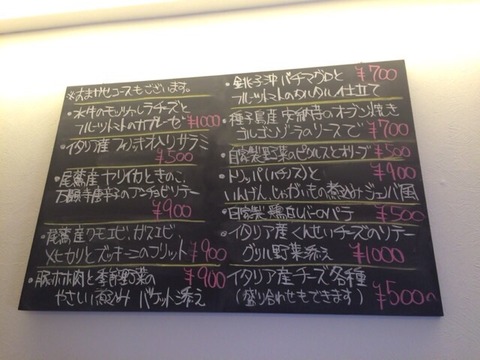 ※おまかせコースもございます。
・水牛のモッツァレラチーズと
フルーツトマトのカプレーゼ ¥1000
・イタリア産 フィノッキオ入りサラミ
¥500
・尾鷲産 ヤリイカときのこ、
万願寺唐辛子のアンチョビソテー
¥900
・尾鷲産 クモエビ、ガスエビ、
メヒカリとズッキーニのフリット ¥900
・豚ホホ肉と季節野菜の ¥900
やさしい煮込み バケット添え
・銚子沖 バチマグロと ¥700
フルーツトマトのタルタル仕立て
・種子島産 安納芋のオーブン焼き
ゴルゴンゾーラのソースで ¥700
・自家製野菜のピクルスとオリーブ ¥500
・トリッパ(ハチノス)と ¥900
いんげん、じゃがいもの煮込み ジェノバ風
・自家製 鶏白レバーのパテ ¥500
・イタリア産 くんせいチーズのソテー
グリル野菜添え ¥1000
・イタリア産チーズ各種
(盛り合わせもできます) ¥500〜